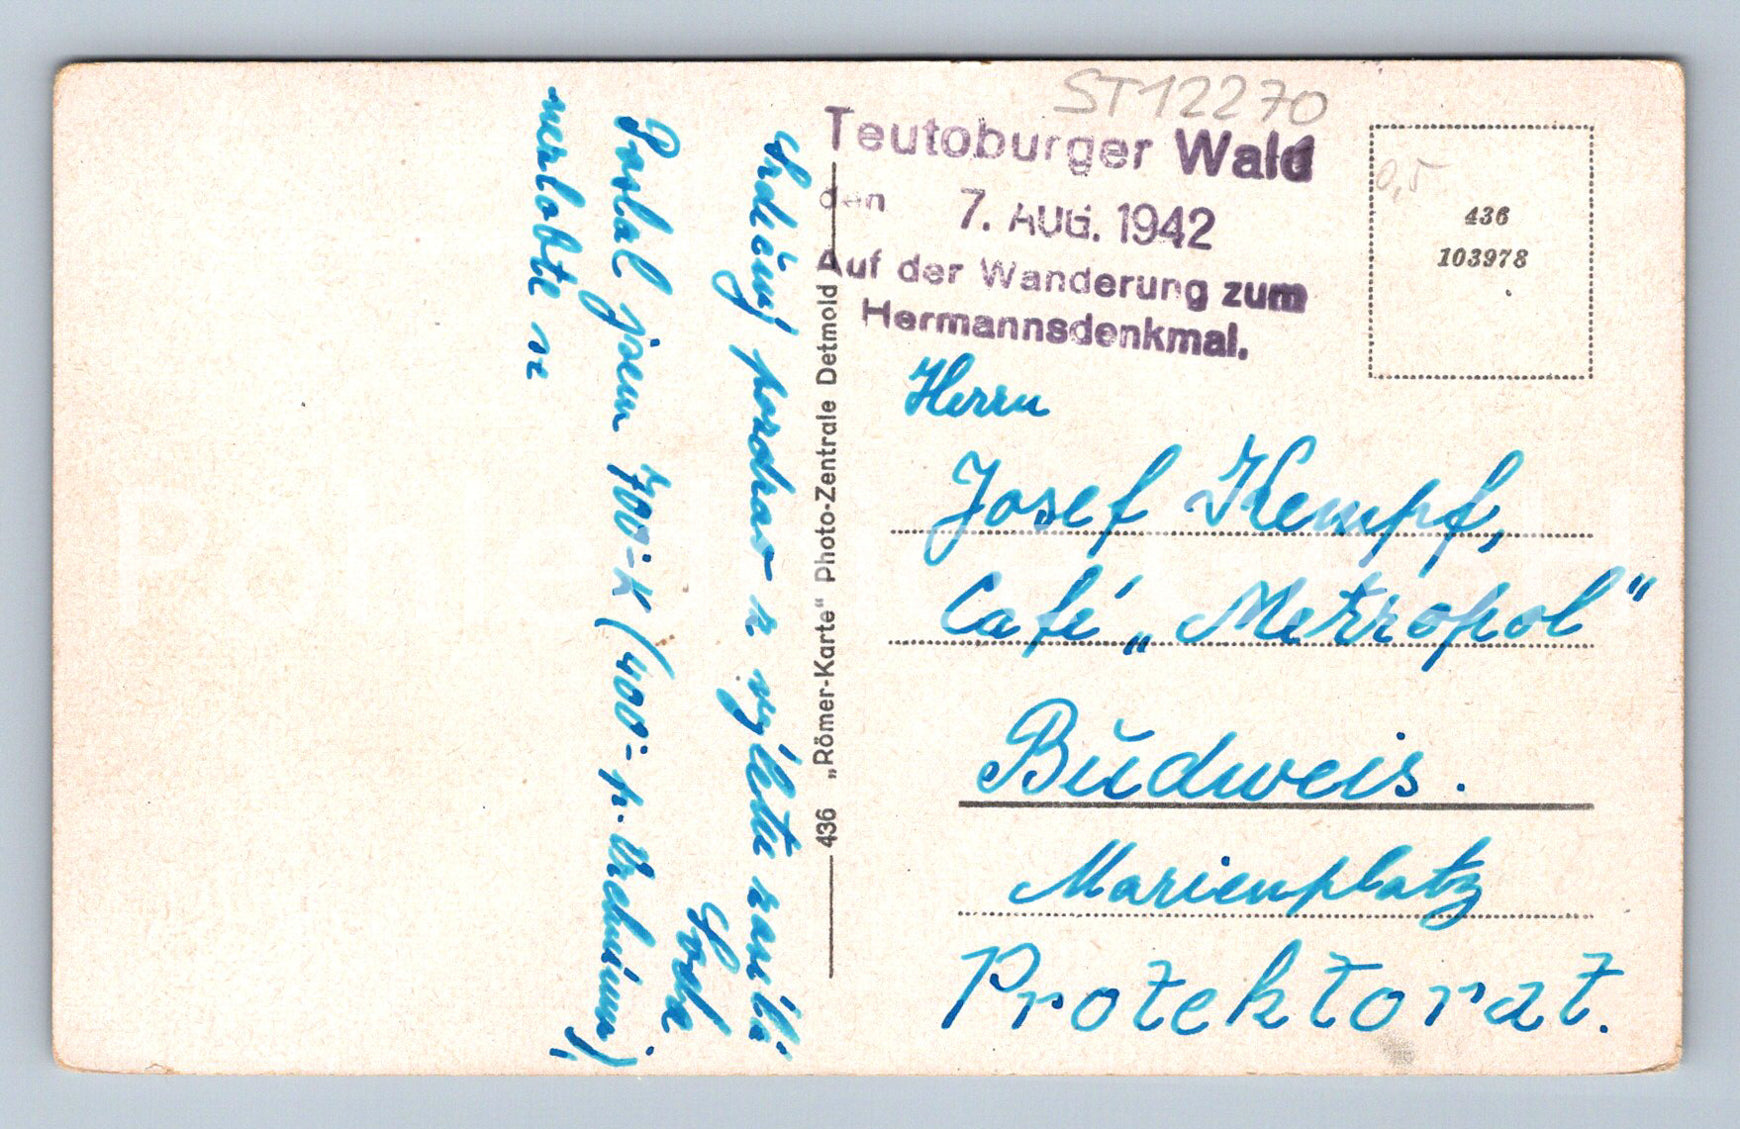 ST12270
Teutoburger Wald
den 7. AUG. 1942
Auf der Wanderung zum
Hermannsdenkmal.
0,5
436
103978
Herrn
Josef Kempf,
Café „Metropol"
Budweis.
Marienplatz
Protektorat.
436 „Römer-Karte“ Photo-Zentrale Detmold
Srdečný pozdrav z výletu zasílá
Poslal jsem 700·-K (400·- p.
nezlobte se